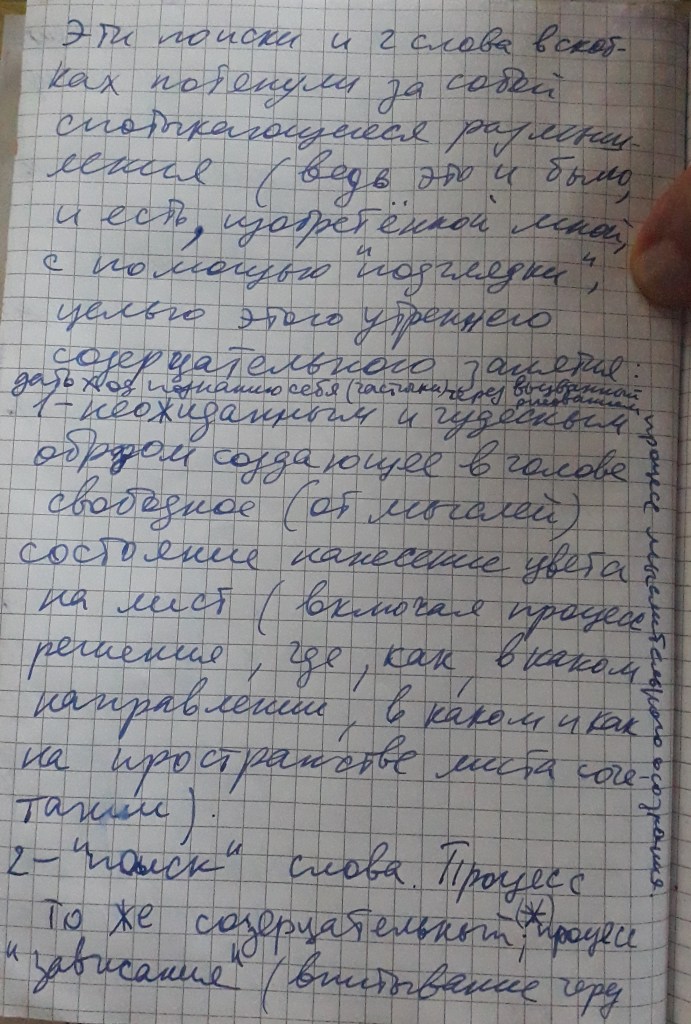 Эти поиски и 2 слова в скоб-
ках потянули за собой
спотыкающиеся размыш-
ления (ведь это и было,
и есть, изобретённой мной,
с помощью "подглядки",
целью этого утреннего
созерцательного занятия:
дать ход познанию себя (частички) через вызванный
1 - неожиданным и чудесным
образом создающее в голове
свободное (от мыслей)
состояние нанесение цвета
на лист (включая процесс
решения, где, как, в каком
направлении, в каком и как
на пространстве листа соче-
тании).
2 - "поиск" слова. Процесс
то же созерцательный, (*) процесс
"зависания" (впитывание через
процесс мыслительного осознания.